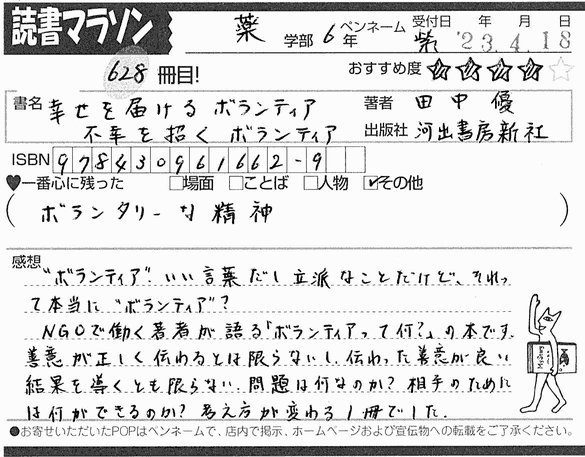 読書マラソン
薬 学部 6 年
ペンネーム 紫
受付日 年 月 日
'23.4.18
628 冊目!
おすすめ度 ★★★★☆
書名 幸せを届けるボランティア
不幸を招くボランティア
著者 田中 優
出版社 河出書房新社
ISBN 9784309616662-9
♥一番心に残った □場面 □ことば □人物 ☑その他
(ボランタリーな精神)
感想
"ボランティア"。いい言葉だし立派なことだけど、それっ
て本当に"ボランティア"?
NGOで働く著者が語る「ボランティアって何?」の本です。
善意が正しく伝わるとは限らないし、伝わった善意が良い
結果を導くとも限らない。問題は何なのか? 相手のために
は何ができるのか? 考え方が変わる1冊でした。
●お寄せいただいたPOPはペンネームで、店内で掲示、ホームページおよび宣伝物への転載をご了承ください。